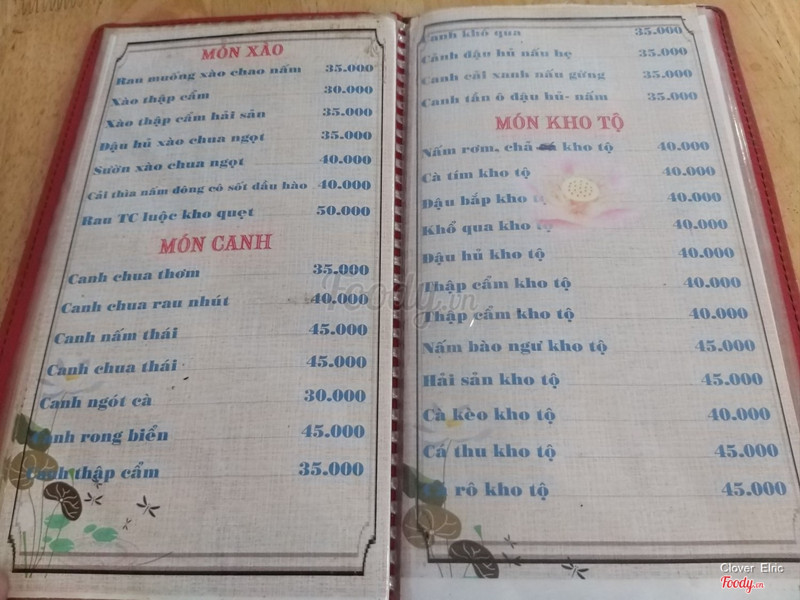 MÓN XÀO
Rau muống xào chao nấm 35.000
Xào thập cẩm 30.000
Xào thập cẩm hải sản 35.000
Đậu hủ xào chua ngọt 35.000
Sườn xào chua ngọt 40.000
Cải thìa nấm đông cô sốt dầu hào 40.000
Rau TC luộc kho quẹt 50.000
MÓN CANH
Canh chua thơm 35.000
Canh chua rau nhút 40.000
Canh nấm thái 45.000
Canh chua thái 45.000
Canh ngót cà 30.000
Canh rong biển 45.000
Canh thập cẩm 35.000
Canh khổ qua 35.000
Cảnh đậu hủ nấu hẹ 35.000
Canh cải xanh nấu gừng 35.000
Canh tần ô đậu hủ- nấm 35.000
MÓN KHO TỘ
Nấm rơm, chả kho tộ 40.000
Cà tím kho tộ 40.000
Đậu bắp kho 40.000
Khổ qua kho 40.000
Đậu hủ kho tộ 40.000
Thập cẩm kho tộ 40.000
Thập cẩm kho tộ 40.000
Nấm bào ngư kho tộ 45.000
Hải sản kho tộ 45.000
Cà kèo kho tộ 40.000
Cá thu kho tộ 45.000
Cá rô kho tộ 45.000
Foody.vn
Clover Elric
Foody.vn